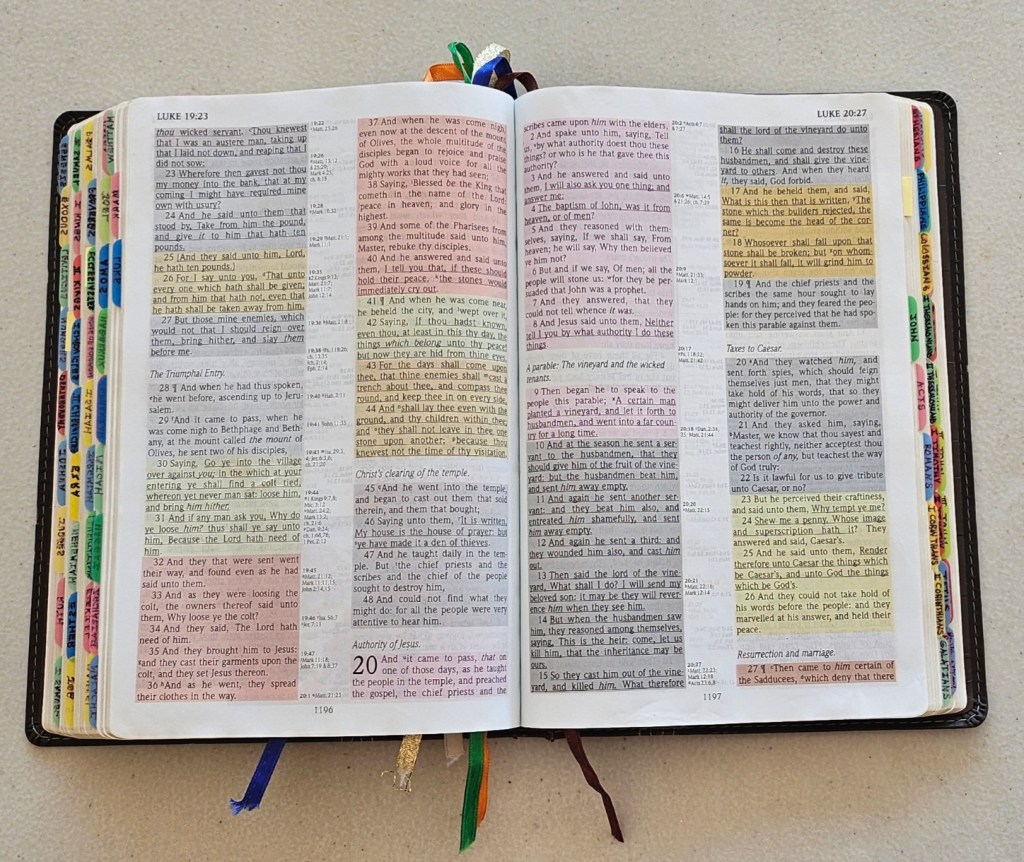 LUKE 19:23
thou wicked servant. Thou knewest
that I was an austere man, taking up
that I laid not down, and reaping that I
did not sow;
23 Wherefore then gavest not thou
my money into the bank, that at my
coming I might have required mine
own with usury?
24 And he said unto them that
stood by, Take from him the pound,
and give it to him that hath ten
pounds.
25 (And they said unto him, Lord,
he hath ten pounds.)
26 For I say unto you, That unto
every one which hath shall be given;
and from him that hath not, even that
he hath shall be taken away from him.
27 But those mine enemies, which
would not that I should reign over
them, bring hither, and slay them
before me.
The Triumphal Entry.
28 ¶ And when he had thus spoken,
he went before, ascending up to Jeru-
salem.
29 And it came to pass, when he
was come nigh to Bethphage and Beth-
any, at the mount called the mount of
Olives, he sent two of his disciples,
30 Saying, Go ye into the village
over against you; in the which at your
entering ye shall find a colt tied,
whereon yet never man sat: loose him,
and bring him hither.
31 And if any man ask you, Why do
ye loose him? thus shall ye say unto
him, Because the Lord hath need of
him.
32 And they that were sent went
their way, and found even as he had
said unto them.
33 And as they were loosing the
colt, the owners thereof said unto
them, Why loose ye the colt?
34 And they said, The Lord hath
need of him.
35 And they brought him to Jesus:
and they cast their garments upon the
colt, and they set Jesus thereon.
36 And as he went, they spread
their clothes in the way.
37 And when he was come nigh,
even now at the descent of the mount
of Olives, the whole multitude of the
disciples began to rejoice and praise
God with a loud voice for all the
mighty works that they had seen;
38 Saying, Blessed be the King that
cometh in the name of the Lord:
peace in heaven; and glory in the
highest.
39 And some of the Pharisees from
among the multitude said unto him,
Master, rebuke thy disciples.
40 And he answered and said unto
them, I tell you that, if these should
hold their peace, the stones would
immediately cry out.
41 ¶ And when he was come near,
he beheld the city, and wept over it,
42 Saying, If thou hadst known,
even thou, at least in this thy day, the
things which belong unto thy peace!
but now they are hid from thine eyes.
43 For the days shall come upon
thee, that thine enemies shall cast a
trench about thee, and compass thee
round, and keep thee in on every side,
44 And shall lay thee even with the
ground, and thy children within thee;
and they shall not leave in thee one
stone upon another; because thou
knewest not the time of thy visitation.
Christ's clearing of the temple.
45 And he went into the temple,
and began to cast out them that sold
therein, and them that bought;
46 Saying unto them, It is written,
My house is the house of prayer: but
ye have made it a den of thieves.
47 And he taught daily in the tem-
ple. But the chief priests and the
scribes and the chief of the people
sought to destroy him,
48 And could not find what they
might do: for all the people were very
attentive to hear him.
Authority of Jesus.
20 And it came to pass, that on
one of those days, as he taught
the people in the temple, and preached
the gospel, the chief priests and the
1196
LUKE 20:27
scribes came upon him with the elders,
2 And spake unto him, saying, Tell
us, by what authority doest thou these
things? or who is he that gave thee this
authority?
3 And he answered and said unto
them, I will also ask you one thing; and
answer me:
4 The baptism of John, was it from
heaven, or of men?
5 And they reasoned with them-
selves, saying, If we shall say, From
heaven; he will say, Why then believed
ye him not?
6 But and if we say, Of men; all the
people will stone us: for they be per-
suaded that John was a prophet.
7 And they answered, that they
could not tell whence it was.
8 And Jesus said unto them, Neither
tell I you by what authority I do these
things.
A parable: The vineyard and the wicked
tenants.
9 Then began he to speak to the
people this parable; A certain man
planted a vineyard, and let it forth to
husbandmen, and went into a far coun-
try for a long time.
10 And at the season he sent a ser-
vant to the husbandmen, that they
should give him of the fruit of the vine-
yard: but the husbandmen beat him,
and sent him away empty.
11 And again he sent another ser-
vant: and they beat him also, and
entreated him shamefully, and sent
him away empty.
12 And again he sent a third: and
they wounded him also, and cast him
out.
13 Then said the lord of the vine-
yard, What shall I do? I will send my
beloved son: it may be they will rever-
ence him when they see him.
14 But when the husbandmen saw
him, they reasoned among themselves,
saying, This is the heir: come, let us
kill him, that the inheritance may be
ours.
15 So they cast him out of the vine-
yard, and killed him. What therefore
shall the lord of the vineyard do unto
them?
16 He shall come and destroy these
husbandmen, and shall give the vine-
yard to others. And when they heard
it, they said, God forbid.
17 And he beheld them, and said,
What is this then that is written, The
stone which the builders rejected, the
same is become the head of the cor-
ner?
18 Whosoever shall fall upon that
stone shall be broken; but on whom-
soever it shall fall, it will grind him to
powder.
19 ¶ And the chief priests and the
scribes the same hour sought to lay
hands on him; and they feared the peo-
ple: for they perceived that he had spo-
ken this parable against them.
Taxes to Caesar.
20 And they watched him, and
sent forth spies, which should feign
themselves just men, that they might
take hold of his words, that so they
might deliver him unto the power and
authority of the governor.
21 And they asked him, saying,
Master, we know that thou sayest and
teachest rightly, neither acceptest thou
the person of any, but teachest the way
of God truly:
22 Is it lawful for us to give tribute
unto Caesar, or no?
23 But he perceived their craftiness,
and said unto them, Why tempt ye me?
24 Shew me a penny. Whose image
and superscription hath it? They
answered and said, Caesar's.
25 And he said unto them, Render
therefore unto Caesar the things which
be Caesar's, and unto God the things
which be God's.
26 And they could not take hold of
his words before the people: and they
marvelled at his answer, and held their
peace.
Resurrection and marriage.
27 ¶ Then came to him certain of
the Sadducees, which deny that there
1197
JOHN
ACTS
ROMANS
I CORINTHIANS
II CORINTHIANS
GALATIANS